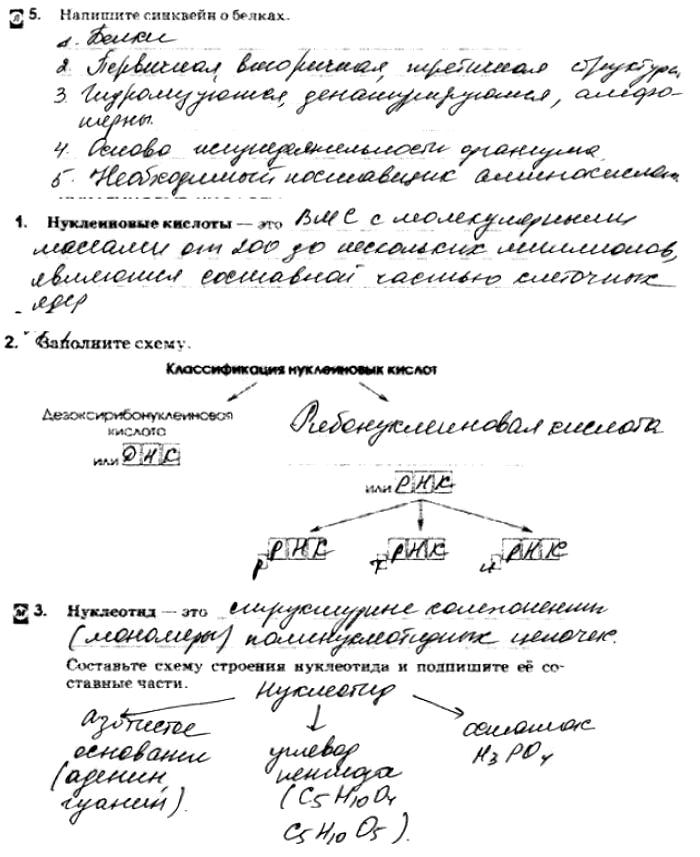 Л 5. Напишите синквейн о белках.
1. Белки
2. Первичная, вторичная, третичная структура
3. Гидролизуются, денатурируются, амфо-
терны.
4. Основа жизнедеятельности организма
5. Необходимый поставщик аминокислот
1. Нуклеиновые кислоты — это ВМС с молекулярными
массами от 200 до нескольких миллионов,
являются составной частью клеточных
ядер
2. Заполните схему.
Классификация нуклеиновых кислот
Дезоксирибонуклеиновая
кислота
или ДНК
Рибонуклеиновая кислота
или РНК
р РНК т РНК и РНК
М 3. Нуклеотид — это структурные компоненты
(мономеры) полинуклеотидных цепочек.
Составьте схему строения нуклеотида и подпишите её со-
ставные части.
Нуклеотид
Азотистое
основание
(аденин
гуанин).
углевод
пентоза
(C5H10O4
C5H10O5).
остаток
H3PO4